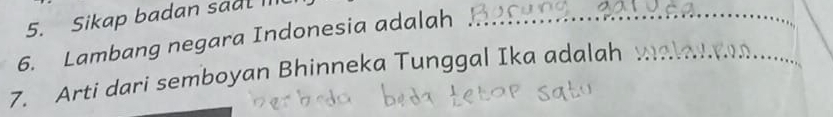 5. Sikap badan saat
6. Lambang negara Indonesia adalah Burung garuda
7. Arti dari semboyan Bhinneka Tunggal Ika adalah walaupun
berbeda beda tetap satu